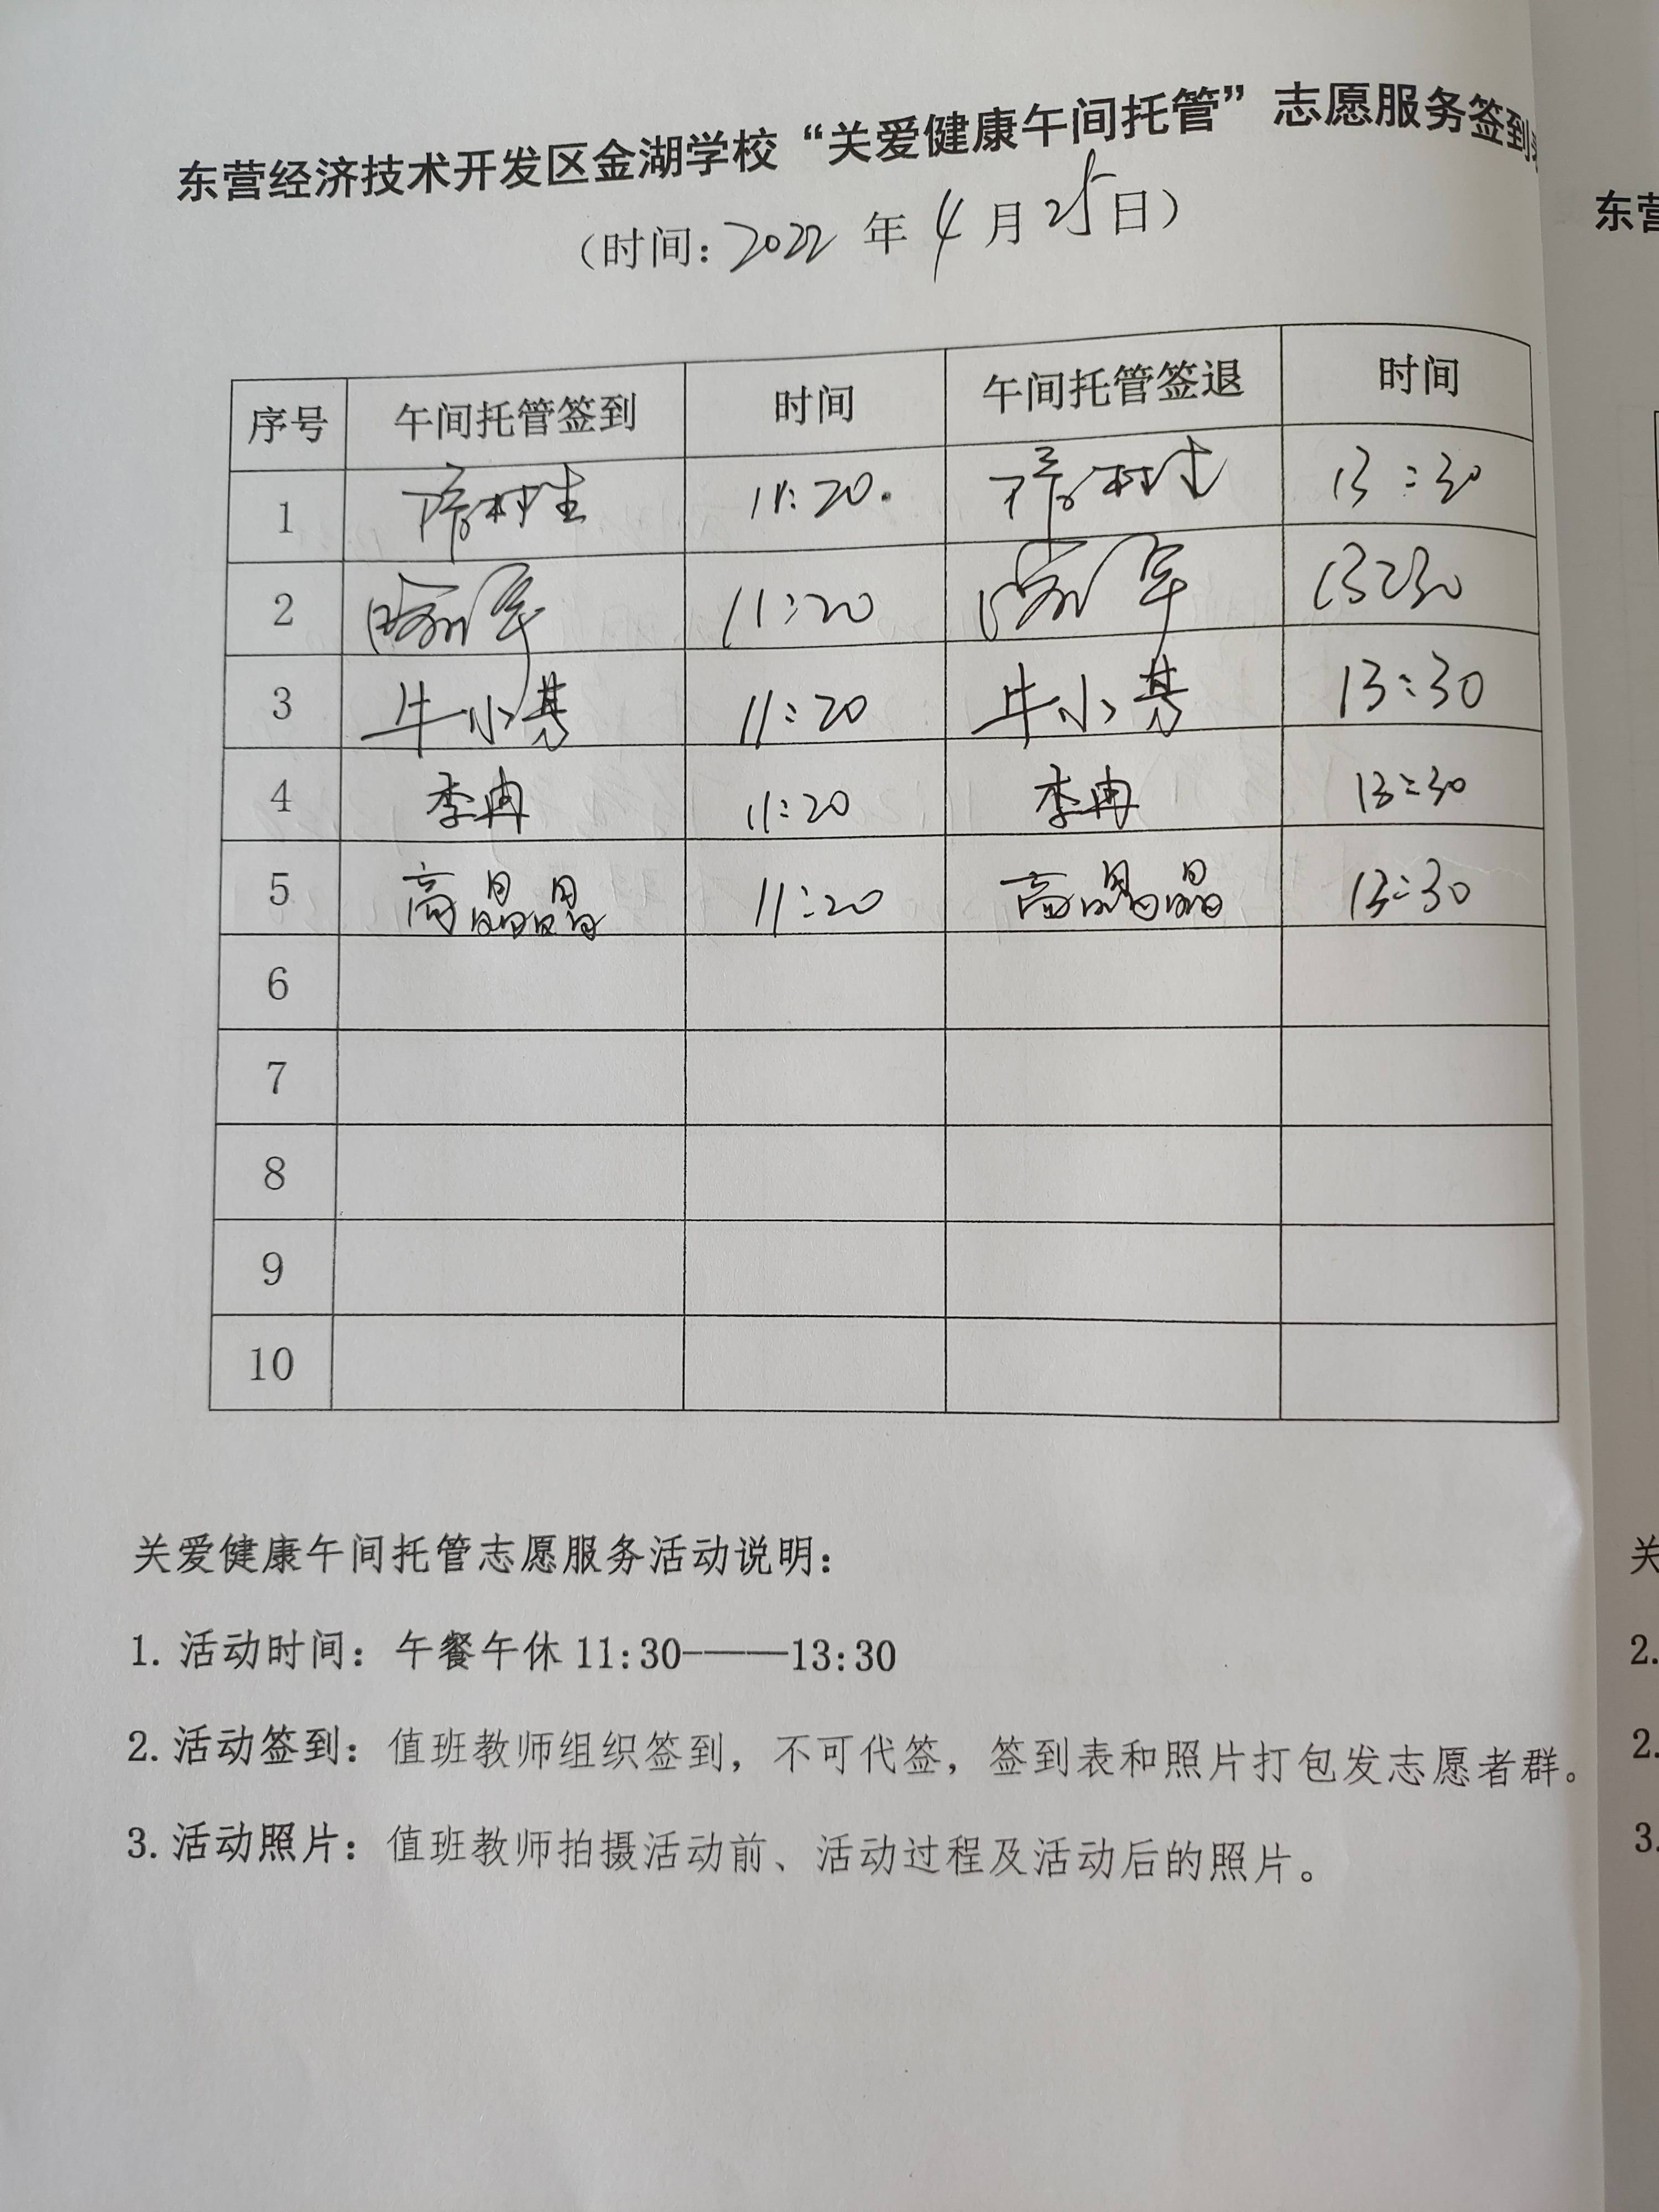 东营经济技术开发区金湖学校“关爱健康午间托管”志愿服务签到
东营
（时间：2022年4月25日）
序号 午间托管签到 时间 午间托管签退 时间
1 11:20. 13:30
2 11:20 13:30
3 牛小芳 11:20 牛小芳 13:30
4 李冉 11:20 李冉 13:30
5 高晶晶 11:20 高晶晶 13:30
6
7
8
9
10
关爱健康午间托管志愿服务活动说明：
关
1. 活动时间：午餐午休 11:30———13:30
2.
2. 活动签到：值班教师组织签到，不可代签，签到表和照片打包发志愿者群。
2.
3. 活动照片：值班教师拍摄活动前、活动过程及活动后的照片。
3.